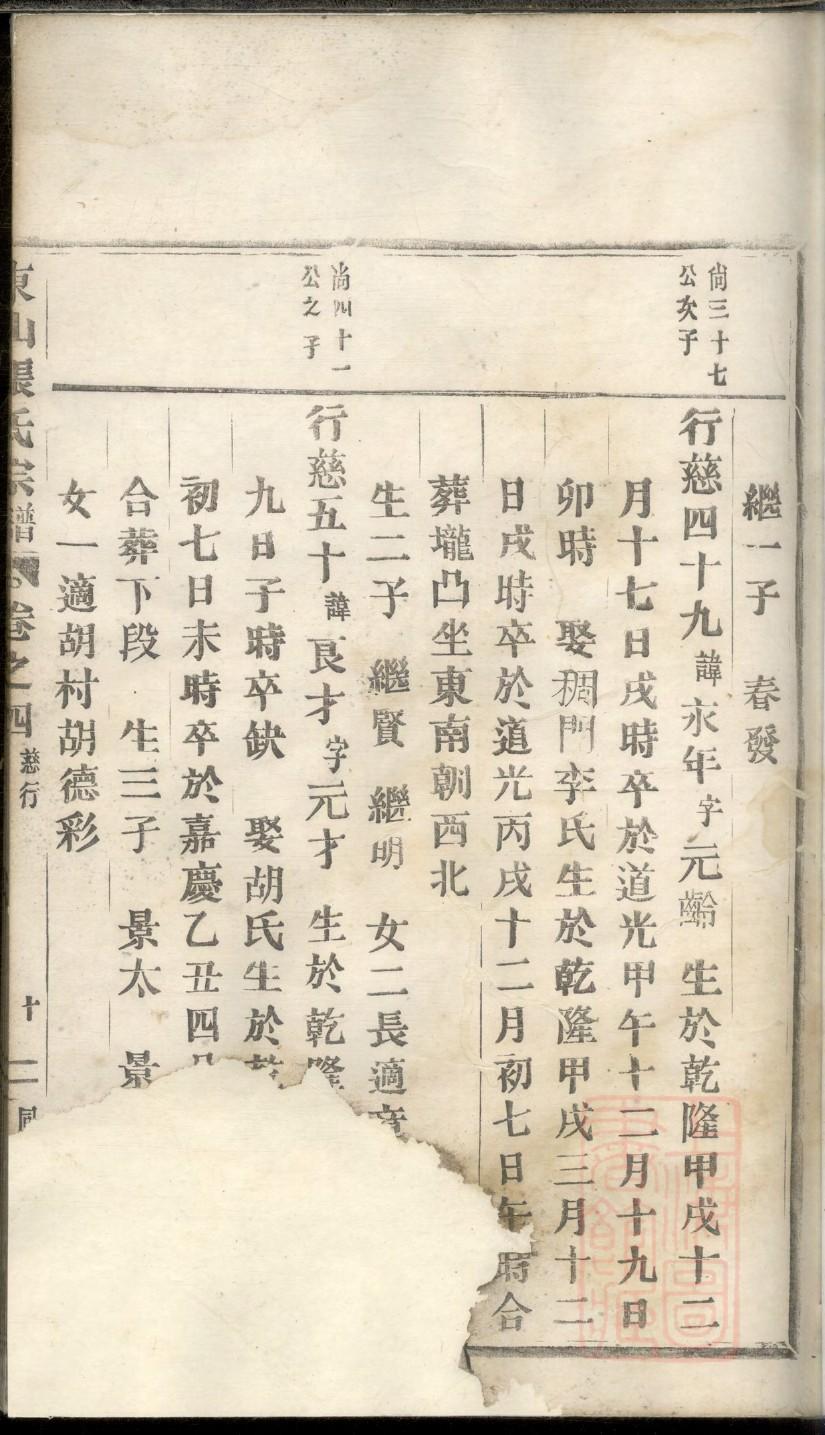 繼一子　春發
尙三十七
公次子
行慈四十九諱永年字元齡　生於乾隆甲戌十二
月十七日戌時卒於道光甲午十二月十九日
卯時　娶稠門李氏生於乾隆甲戌三月十二
日戌時卒於道光丙戌十二月初七日午時合
葬壠凸坐東南朝西北
生二子　繼賢　繼明　女二長適
尙四十一
公之子
行慈五十諱良才字元才　生於乾隆
九日子時卒缺　娶胡氏生於乾
初七日未時卒於嘉慶乙丑四月
合葬下段　生三子　景太　景
女一適胡村胡德彩
東山張氏宗譜　卷之四　慈行　十二